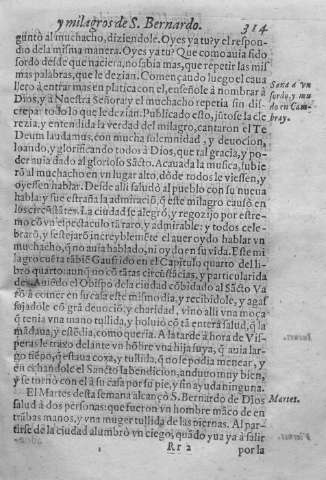 y milagros de S. Bernardo. 314
guntò al muchacho, diziendole. Oyes ya tu? y el respon-
dio de la misma manera. Oyes ya tu? Que como auia sido
sordo desde que naciera, no sabia mas, que repetir las mis
mas palabras, que le dezian. Començando luego el caua
llero à entrar mas en platica con el, enseñole à nombrar à
Dios, y à Nuestra Señora: y el muchacho repetia sin dis-
crepar todo lo que le dezian. Publicado esto, jūtose la cle
rezia, y entendida la verdad del milagro, cantaron el Te
Deum laudamus, con mucha solemnidad, y deuocion,
loando, y glorificando todos à Dios, que tal gracia, y po-
der auia dado al glorioso Sācto. Acauada la musica, subie
rō al muchacho en vn lugar alto, dōde todos le viessen, y
oyessen hablar. Desde alli saludò al pueblo con su nueua
habla: y fue estraña la admiraciō, q̄ este milagro causò en
los circūstātes. La ciudad se alegrò, y regozijo por estre-
mo cō vn espectaculo tā raro, y admirable: y todos cele-
braro, y festejarō increyblemēte el auer oydo hablar vn
muchacho, q̄ no auia hablado, ni oydo en su vida. Este mi
lagro cuēta tābiē Gaufrido en el Capitulo quarto del li-
bro quarto: aunq̄ no cō tātas circūstācias, y particularida
des. Auiēdo el Obispo de la ciudad cōbidado al Sācto Va
rō à comer en su casa este mismo dia, y recibidole, y agas
sajadole cō grā deuociō, y charidad, vino alli vna moça
q̄ tenia vna mano tullida, y boluiò cō tā entera salud, q̄ la
mādaua, y estēdia, como queria. A la tarde à hora de Vis-
peras le traxo delante vn hōbre vna hija suya, q̄ auia lar-
go tiēpo, q̄ estaua coxa, y tullida, q̄ no se podia menear, y
en echandole el Sancto la bendicion, anduuo muy bien,
y se tornò con el à su casa por su pie, y sin ayuda ninguna.
El Martes desta semana alcançò S. Bernardo de Dios
salud à dos personas: que fueron vn hombre māco de en
trābas manos, y vna muger tullida de las piernas. Al par-
tirse de la ciudad alumbrò vn ciego, quādo yua ya à salir
Rr 2 por la
Sana à vn
sordo, y mu
do en Cam-
bray.
Martes.